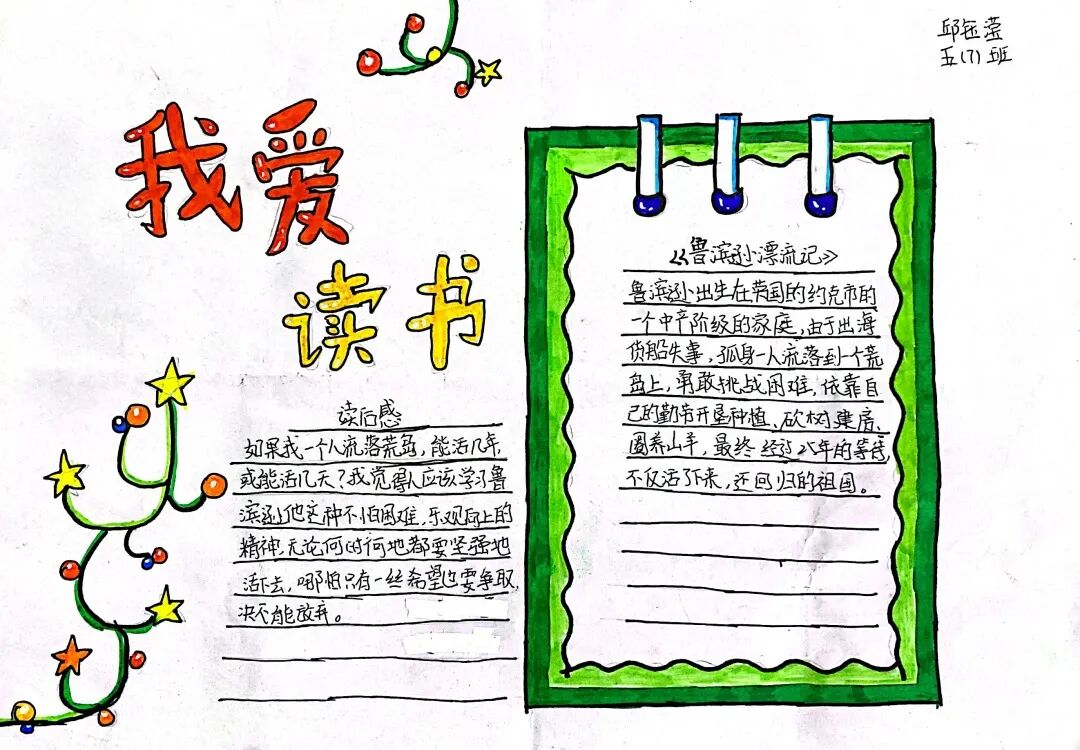 邱钰滢
五(7)班
我爱
读书
读后感
如果我一个人流落荒岛,能活几年,
或能活几天?我觉得人应该学习鲁
滨逊他这种不怕困难,乐观向上的
精神,无论何时何地都要坚强地
活下去,哪怕只有一丝希望也要争取,
决不能放弃。
《鲁滨逊漂流记》
鲁滨逊出生在英国的约克市的
一个中产阶级的家庭,由于出海
货船失事,孤身一人流落到一个荒
岛上,勇敢挑战困难,依靠自
己的勤劳开垦种植、砍树建房、
圈养山羊,最终经过28年的等待,
不仅活了下来,还回归的祖国。